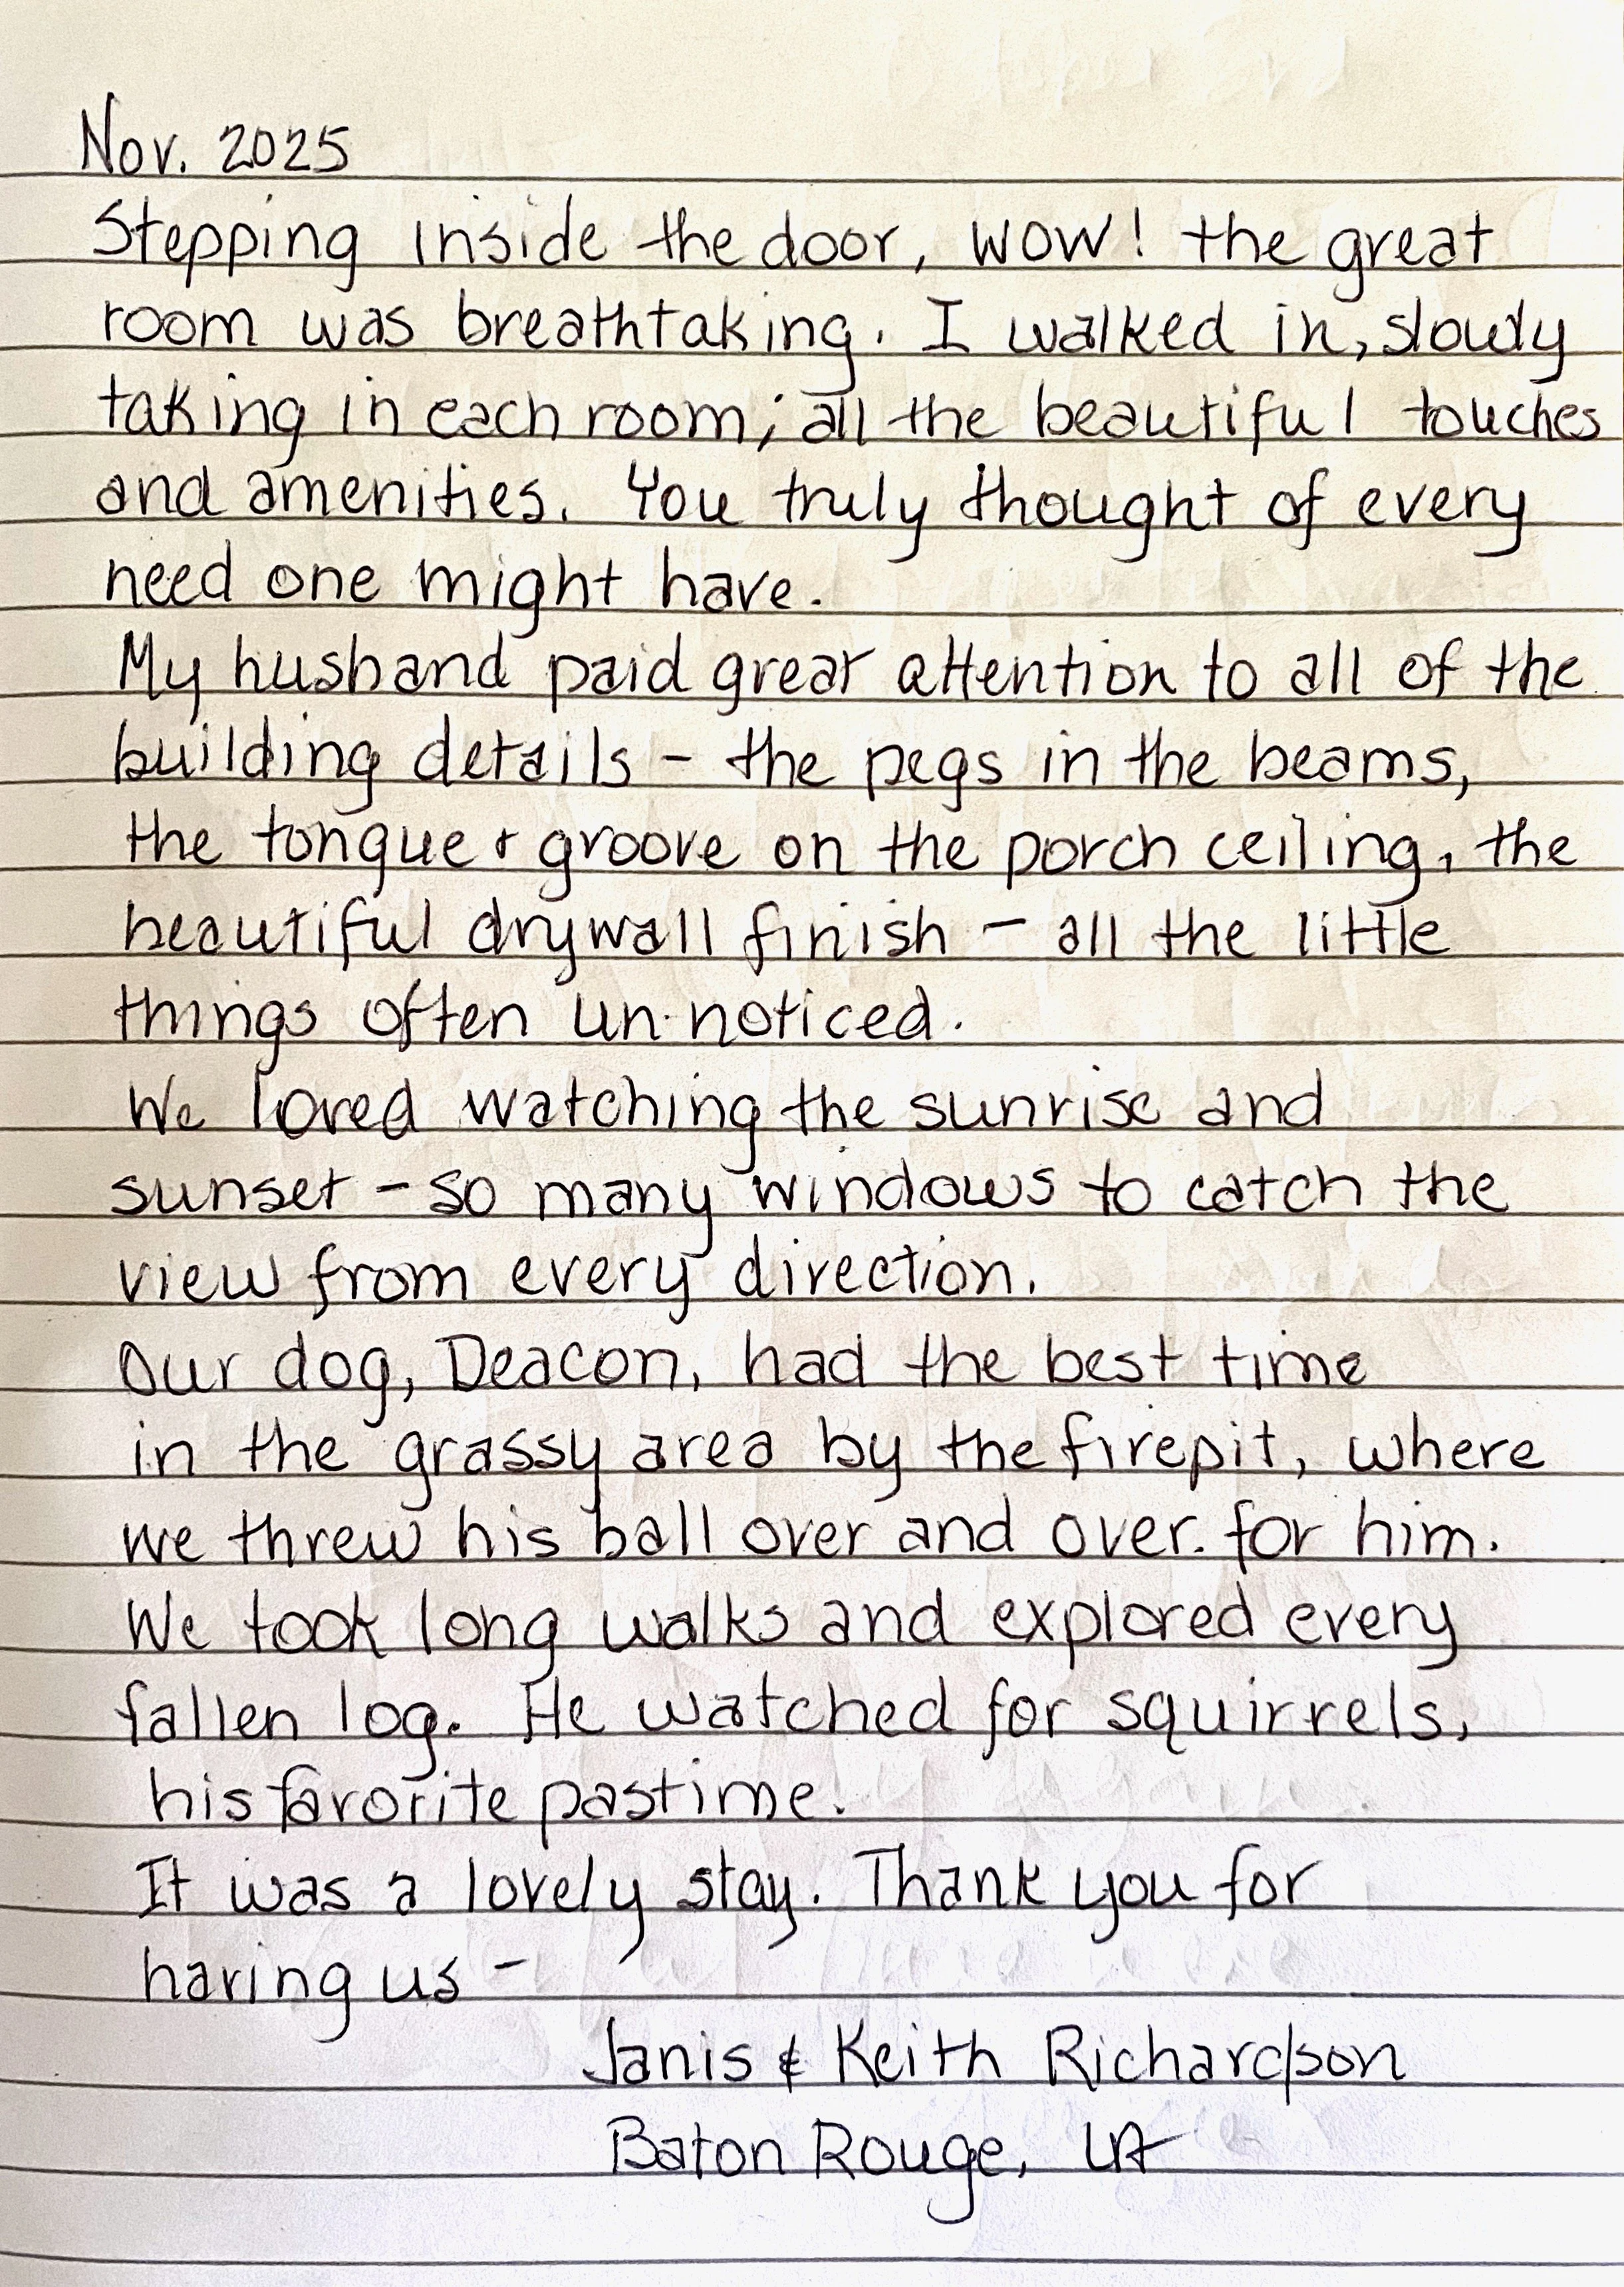 Nov. 2025
Stepping inside the door, WOW! the great
room was breathtaking. I walked in, slowly
taking in each room; all the beautiful touches
and amenities. You truly thought of every
need one might have.
My husband paid great attention to all of the
building details - the pegs in the beams,
the tongue + groove on the porch ceiling, the
beautiful drywall finish - all the little
things often un-noticed.
We loved watching the sunrise and
sunset - so many windows to catch the
view from every direction.
Our dog, Deacon, had the best time
in the grassy area by the firepit, where
we threw his ball over and over for him.
We took long walks and explored every
fallen log. He watched for squirrels,
his favorite pastime.
It was a lovely stay. Thank you for
having us -
Janis & Keith Richardson
Baton Rouge, LA